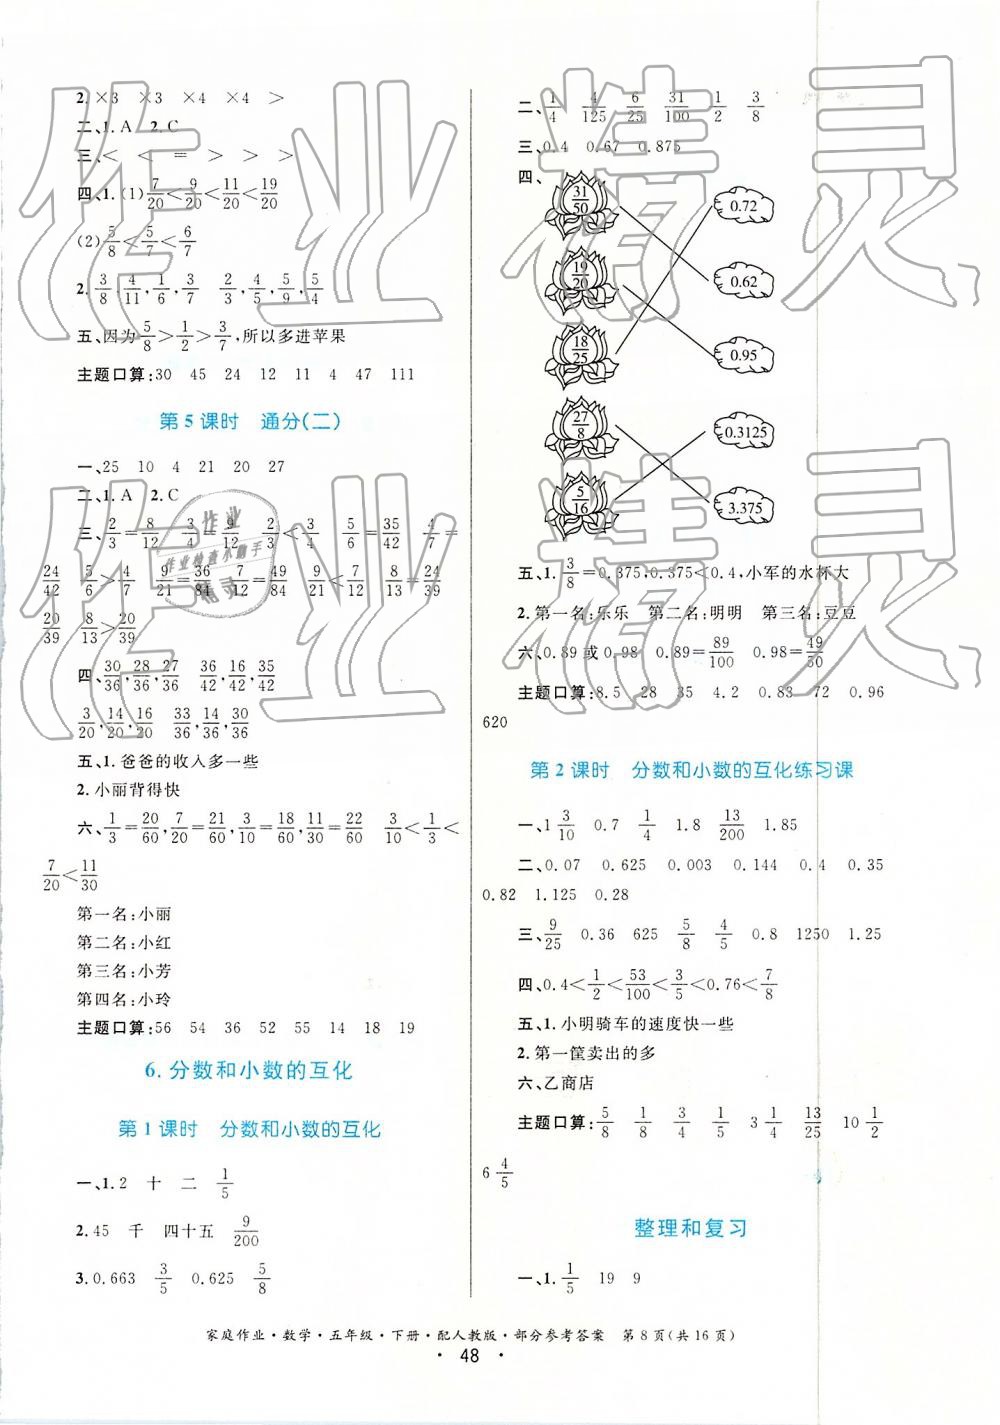 2. ×3 ×3 ×4 ×4 >
二、1. A 2. C
三、< < = > > >
四、1. (1) 7/20 < 9/20 < 11/20 < 19/20
(2) 5/8 < 5/7 < 6/7
2. 3/8, 4/11, 1/6, 3/7 2/3, 4/5, 5/9, 5/4
五、因为 5/8 > 1/2 > 3/7, 所以多进苹果
主题口算: 30 45 24 12 11 4 47 111
第 5 课时 通分(二)
一、25 10 4 21 20 27
二、1. A 2. C
三、2/3 = 8/12 3/4 = 9/12 2/3 < 3/4 5/6 = 35/42 4/7 =
24/42 5/6 > 4/7 9/21 = 36/84 7/12 = 49/84 9/21 < 7/12 8/13 = 24/39
20/39 8/13 > 20/39
四、30/36, 28/36, 27/36 36/42, 16/42, 35/42
3/20, 14/20, 16/20 33/36, 14/36, 30/36
五、1. 爸爸的收入多一些
2. 小丽背得快
六、1/3 = 20/60, 7/20 = 21/60, 3/10 = 18/60, 11/30 = 22/60 3/10 < 1/3 <
7/20 < 11/30
第一名:小丽
第二名:小红
第三名:小芳
第四名:小玲
主题口算: 56 54 36 52 55 14 18 19
6. 分数和小数的互化
第 1 课时 分数和小数的互化
一、1. 2 十 二 1/5
2. 45 千 四十五 9/200
3. 0.663 3/5 0.625 5/8
二、1/4 4/125 6/25 31/100 1/2 3/8
三、0.4 0.67 0.875
四、
31/50 0.72
19/20 0.62
18/25 0.95
27/8 0.3125
5/16 3.375
五、1. 3/8 = 0.375, 0.375 < 0.4, 小军的水杯大
2. 第一名:乐乐 第二名:明明 第三名:豆豆
六、0.89 或 0.98 0.89 = 89/100 0.98 = 49/50
主题口算: 8.5 28 35 4.2 0.83 72 0.96
620
第 2 课时 分数和小数的互化练习课
一、1 3/10 0.7 1/4 1.8 13/200 1.85
二、0.07 0.625 0.003 0.144 0.4 0.35
0.82 1.125 0.28
三、9/25 0.36 625 5/8 4/5 0.8 1250 1.25
四、0.4 < 1/2 < 53/100 < 3/5 < 0.76 < 7/8
五、1. 小明骑车的速度快一些
2. 第一筐卖出的多
六、乙商店
主题口算: 5/8 1/8 3/4 1/5 3 1/4 13/25 10 1/2
6 4/5
整理和复习
一、1. 1/5 19 9
家庭作业·数学·五年级·下册·配人教版·部分参考答案 第 8 页(共 16 页)
· 48 ·
作业精灵
作业精灵
作业
作业检查小助手
精灵